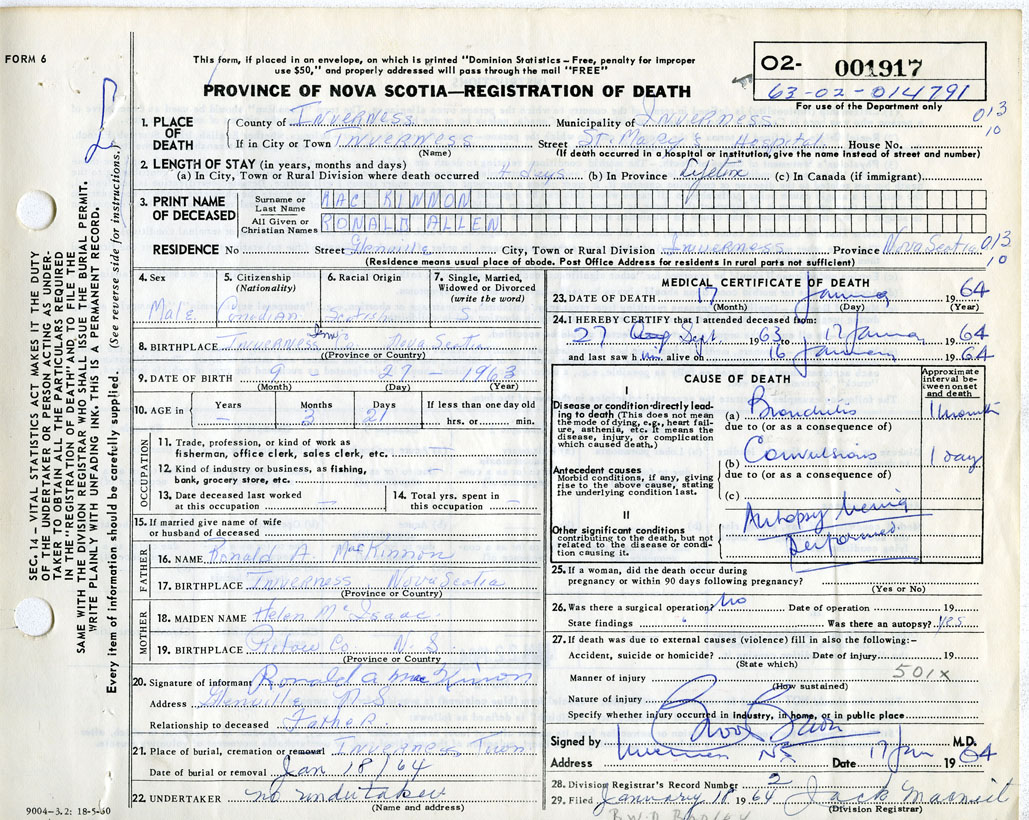 FORM 6
This form, if placed in an envelope, on which is printed "Dominion Statistics – Free, penalty for improper
use $50," and properly addressed will pass through the mail "FREE"
PROVINCE OF NOVA SCOTIA—REGISTRATION OF DEATH
02- 001917
63-02-014791
For use of the Department only
1. PLACE OF DEATH
County of Inverness Municipality of Inverness 013
If in City or Town Inverness Street St. Mary's Hospital House No. 10
(Name) (If death occurred in a hospital or institution, give the name instead of street and number)
2. LENGTH OF STAY (in years, months and days)
(a) In City, Town or Rural Division where death occurred 4 days (b) In Province Lifetime (c) In Canada (if immigrant)
3. PRINT NAME OF DECEASED
Surname or Last Name MAC KINNON
All Given or Christian Names RONALD ALLEN
RESIDENCE No Street Glenville City, Town or Rural Division Inverness Province Nova Scotia 013
(Residence means usual place of abode. Post Office Address for residents in rural parts not sufficient) 10
4. Sex 5. Citizenship (Nationality) 6. Racial Origin 7. Single, Married, Widowed or Divorced (write the word)
Male Canadian Scotish S
8. BIRTHPLACE Inverness Inv. Co Nova Scotia
(Province or Country)
9. DATE OF BIRTH 9 - 27 - 1963
(Month) (Day) (Year)
10. AGE in Years Months Days If less than one day old
– 3 21 hrs. or min.
OCCUPATION
11. Trade, profession, or kind of work as
fisherman, office clerk, sales clerk, etc. –
12. Kind of industry or business, as fishing,
bank, grocery store, etc. –
13. Date deceased last worked
at this occupation –
14. Total yrs. spent in
this occupation –
15. If married give name of wife
or husband of deceased
FATHER
16. NAME Ronald A. MacKinnon
17. BIRTHPLACE Inverness Nova Scotia
(Province or Country)
MOTHER
18. MAIDEN NAME Helen McIsaac
19. BIRTHPLACE Pictow Co N. S
(Province or Country
20. Signature of informant Ronald A MacKinnon
Address Glenville N S
Relationship to deceased Father
21. Place of burial, cremation or removal Inverness Town
Date of burial or removal Jan 18/64
22. UNDERTAKER no undertaker
(Name and address)
9004–3.2: 18-5-60
MEDICAL CERTIFICATE OF DEATH
23. DATE OF DEATH 17 January 19 64
(Month) (Day) (Year)
24. I HEREBY CERTIFY that I attended deceased from:
27 Sept 1963 to 17 January 1964
and last saw him alive on 16 January 1964
CAUSE OF DEATH
Approximate interval between onset and death
I
Disease or condition-directly leading to death (This does not mean
the mode of dying, e.g., heart failure, asthenia, etc. It means the
disease, injury, or complication
which caused death.)
(a) Bronchitis 1 month
due to (or as a consequence of)
Antecedent causes
Morbid conditions, if any, giving
rise to the above cause, stating
the underlying condition last.
(b) Convulsions 1 day
due to (or as a consequence of)
(c)
II
Other significant conditions
contributing to the death, but not
related to the disease or condition causing it.
Autopsy being
performed
25. If a woman, did the death occur during
pregnancy or within 90 days following pregnancy?
(Yes or No)
26. Was there a surgical operation? No Date of operation 19
State findings Was there an autopsy? yes
27. If death was due to external causes (violence) fill in also the following:–
Accident, suicide or homicide? Date of injury 19
(State which)
Manner of injury 501X
(How sustained)
Nature of injury
Specify whether injury occurred in industry, in home, or in public place
Signed by M.D.
Address Inverness NS Date 17 Jan 1964
28. Division Registrar's Record Number 2
29. Filed January 18 1964 Jack
(Division Registrar)
SEC. 14 - VITAL STATISTICS ACT MAKES IT THE DUTY
OF THE UNDERTAKER OR PERSON ACTING AS UNDER-
TAKER TO OBTAIN ALL THE PARTICULARS REQUIRED
IN THE "REGISTRATION OF DEATH" AND TO FILE THE
SAME WITH THE DIVISION REGISTRAR WHO SHALL ISSUE THE BURIAL PERMIT.
WRITE PLAINLY WITH UNFADING INK. THIS IS A PERMANENT RECORD.
Every item of information should be carefully supplied. (See reverse side for instructions.)